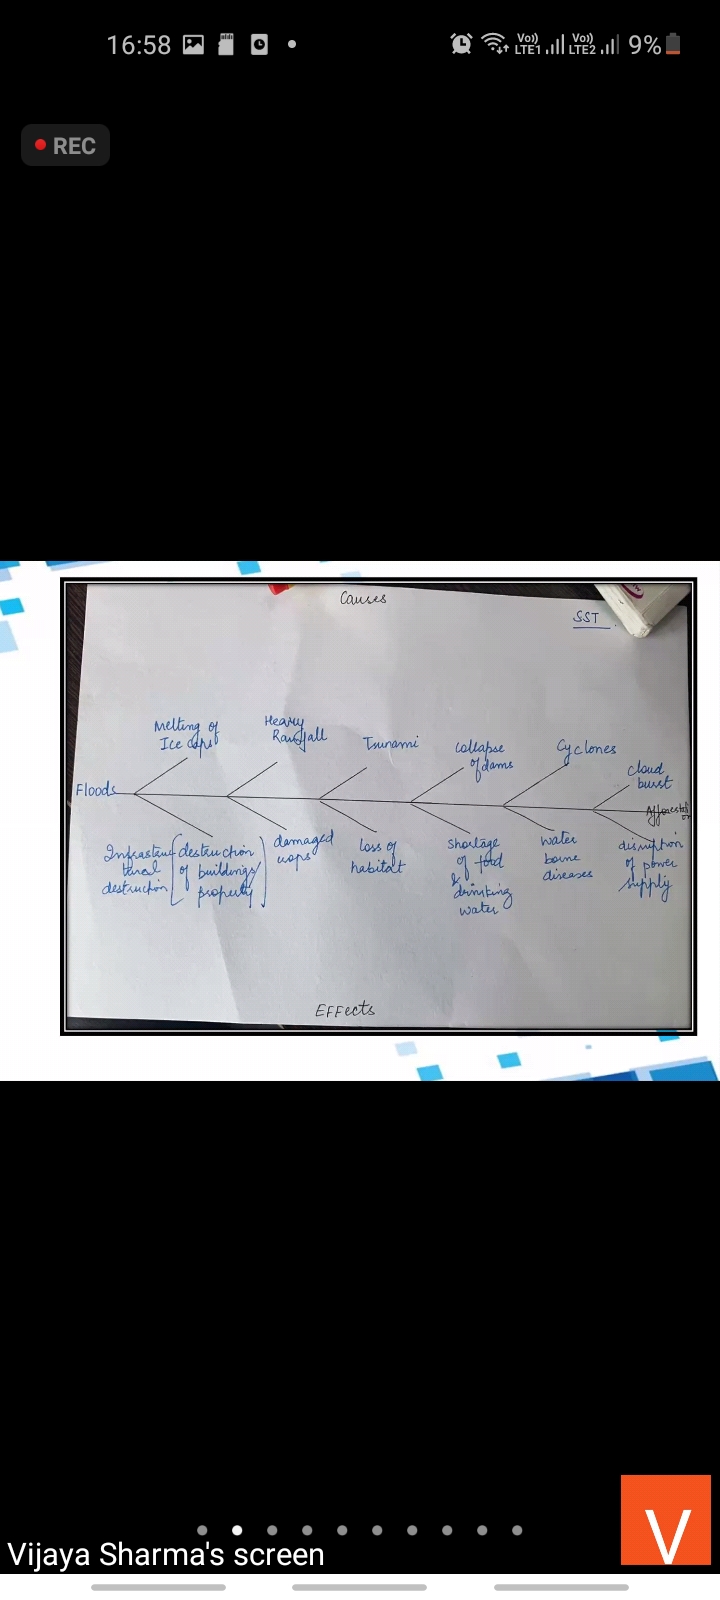 16:58
Vo)) LTE1 Vo)) LTE2 9%
REC
Causes
SST
Melting of
Ice caps
Heavy
Rainfall
Tsunami
Collapse
of dams
Cyclones
cloud
burst
Floods
Infrastruc
tural
destruction
destruction
of buildings/
property
damaged
crops
loss of
habitat
Shortage
of food
&
drinking
water
water
borne
diseases
disruption
of power
supply
EFFects
V
Vijaya Sharma's screen